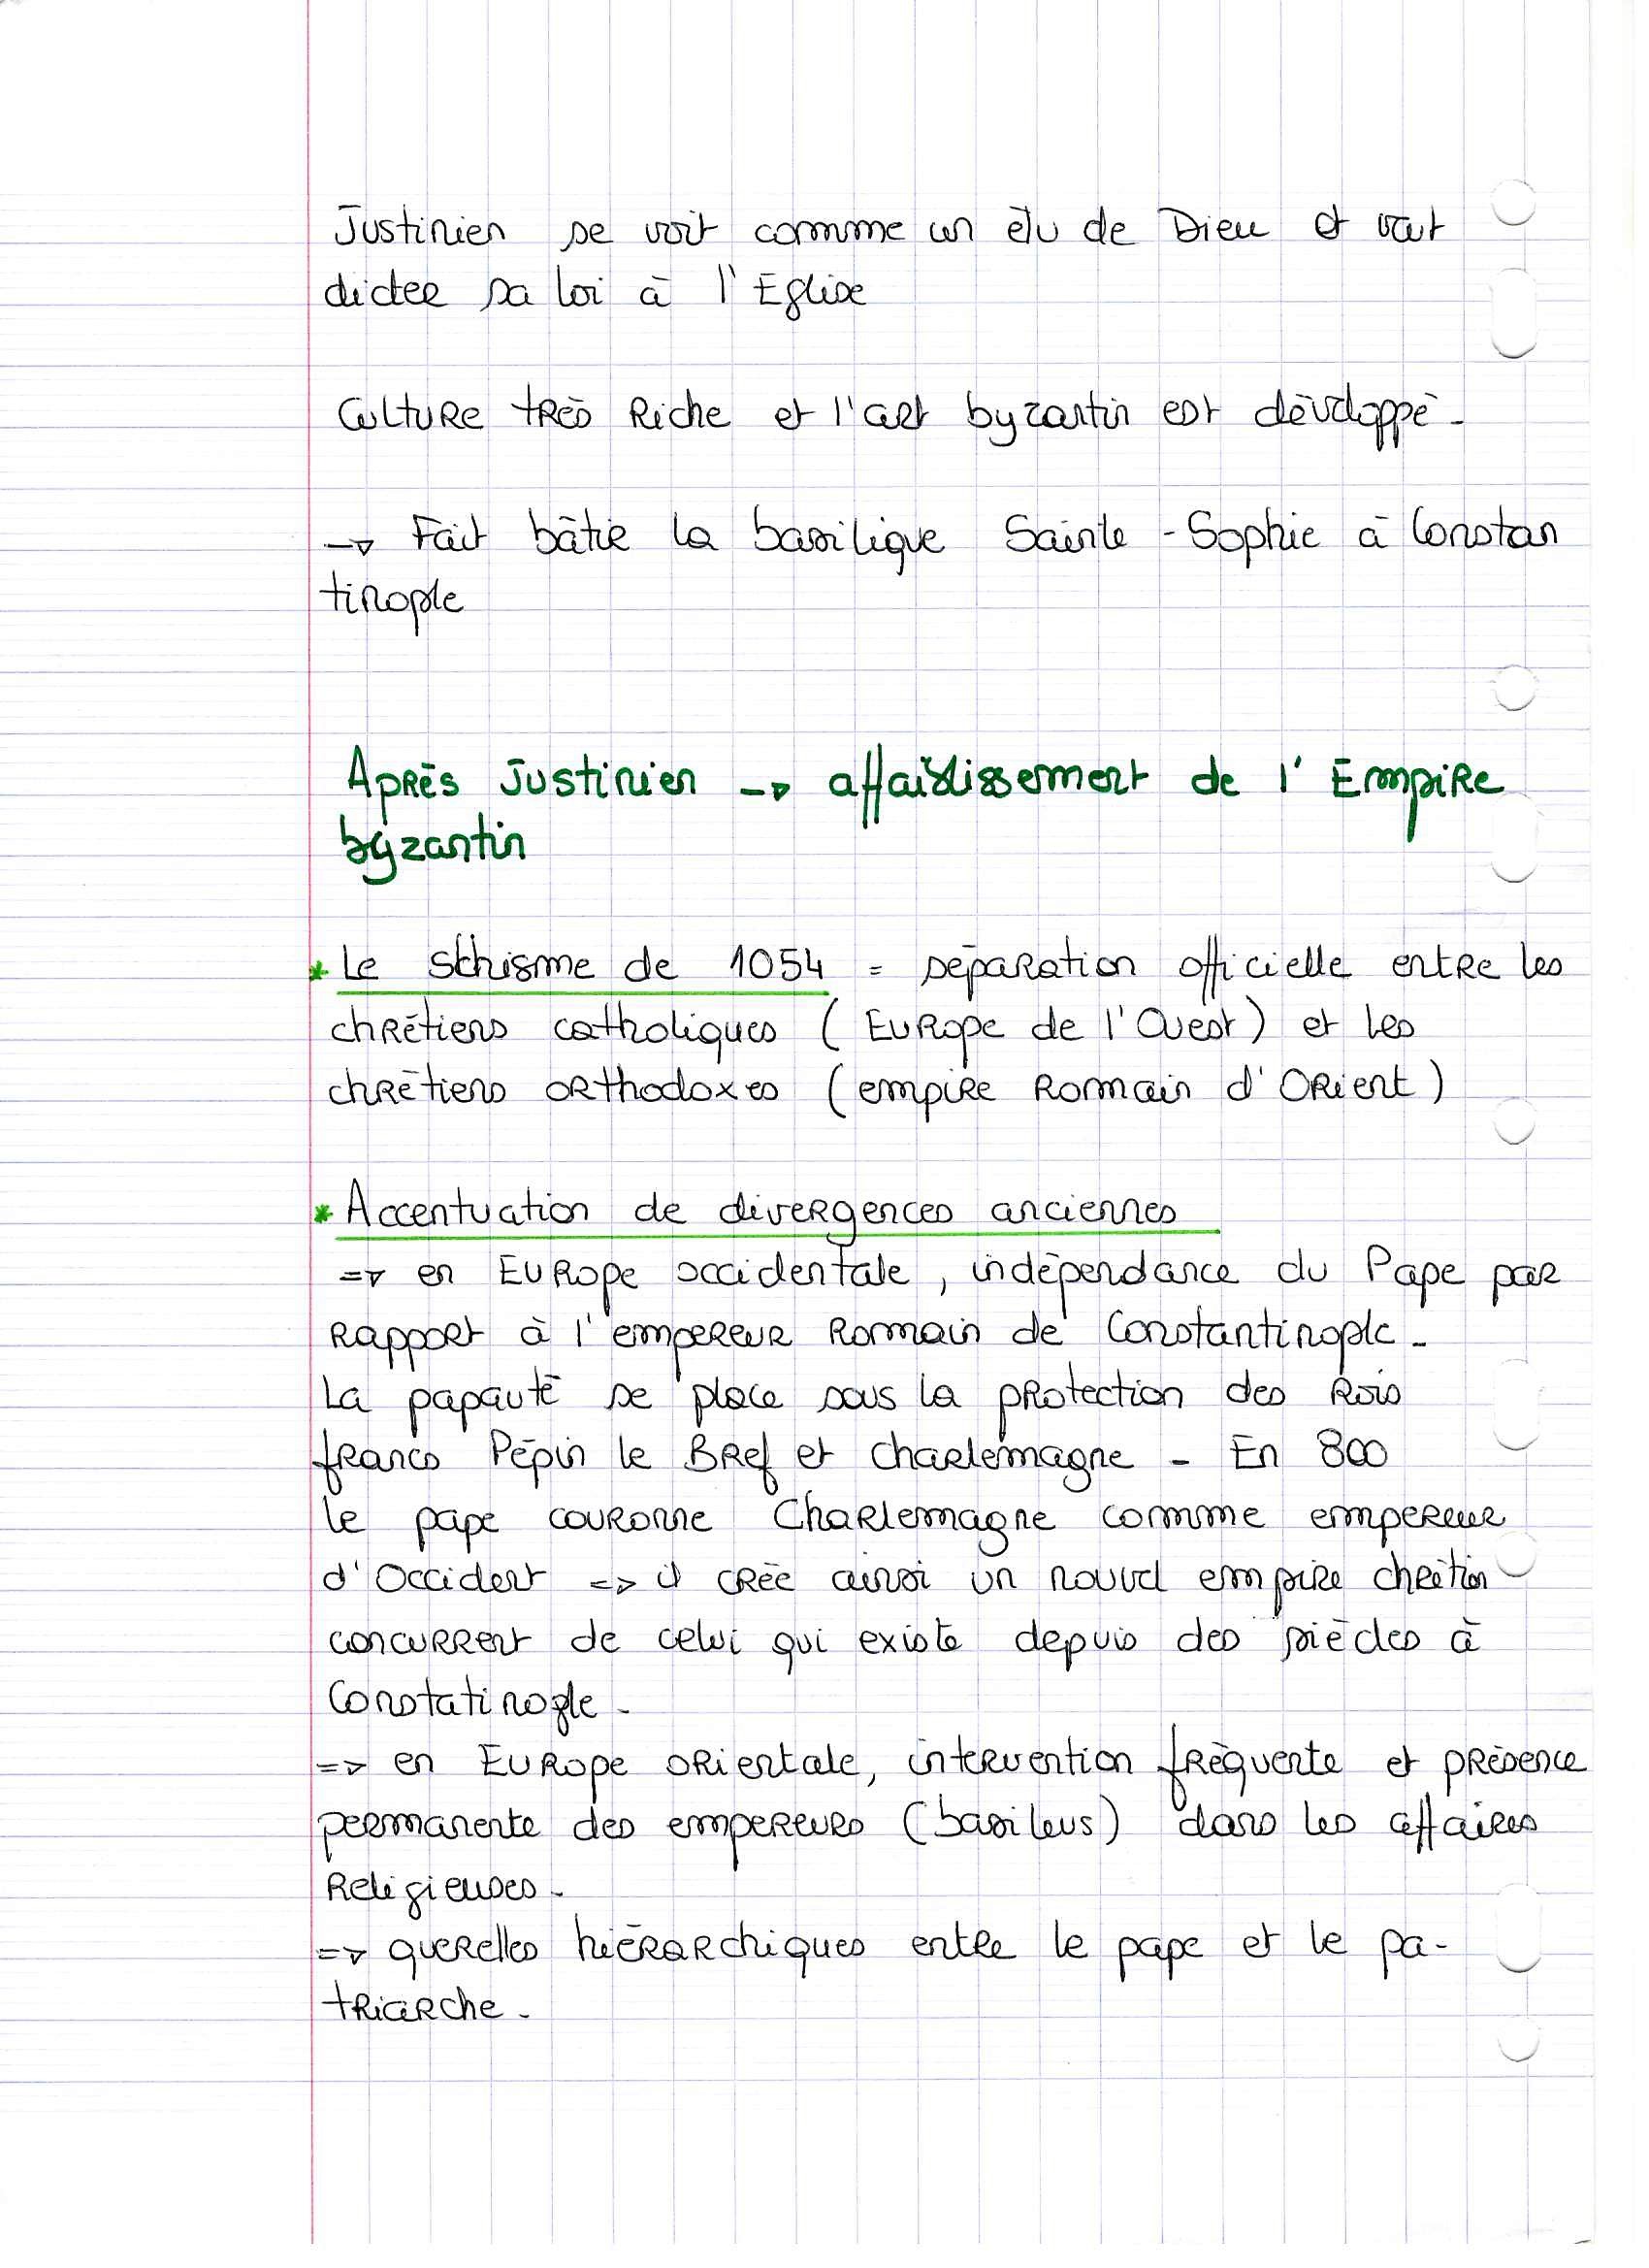 Justinien se voit comme un élu de Dieu et veut
dicter sa loi à l'Eglise
Culture très riche et l'art byzantin est développé.
→ Fait bâtir la basilique Sainte-Sophie à Constan
tinople
Après Justinien → affaiblissement de l'Empire
byzantin
* Le schisme de 1054 = séparation officielle entre les
chrétiens catholiques (Europe de l'Ouest) et les
chrétiens orthodoxes (empire Romain d'Orient)
* Accentuation de divergences anciennes
=> en Europe occidentale, indépendance du Pape par
rapport à l'empereur Romain de Constantinople.
La papauté se place sous la protection des Rois
francs Pépin le Bref et Charlemagne. En 800
le pape couronne Charlemagne comme empereur
d'Occident => il crée ainsi un nouvel empire chrétien
concurrent de celui qui existe depuis des siècles à
Constatinople.
=> en Europe orientale, intervention fréquente et présence
permanente des empereurs (basileus) dans les affaires
religieuses.
=> querelles hiérarchiques entre le pape et le pa-
triarche.